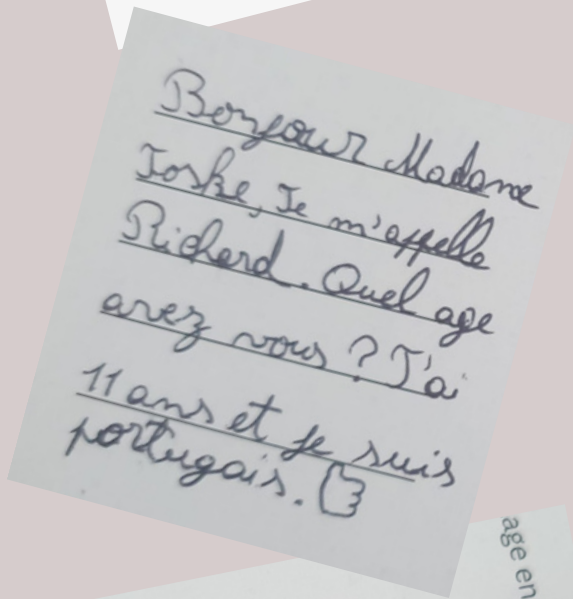 Bonjour Madame
Joske, Je m'appelle
Richard. Quel age
avez vous ? J'ai
11 ans et je suis
portugais.
age en